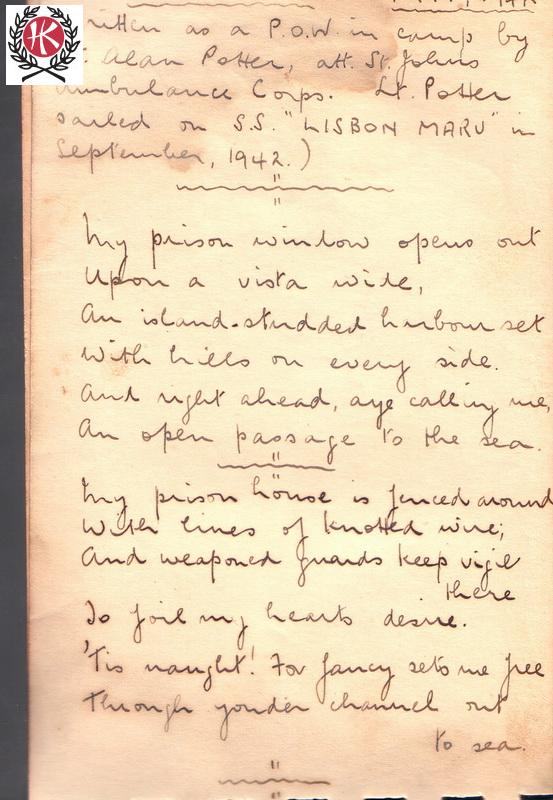 HK
written as a P.O.W. in camp by
: Alan Potter, att. St. Johns
Ambulance Corps. Lt. Potter
sailed on S.S. "LISBON MARU" in
September, 1942.)
My prison window opens out
Upon a vista wide,
An island-studded harbour set
With hills on every side.
And right ahead, aye calling me,
An open passage to the sea.
My prison house is fenced around
With lines of knotted wire;
And weaponed guards keep vigil
there
To foil my hearts desire.
'Tis naught! For fancy sets me free
Through yonder channel out
to sea.